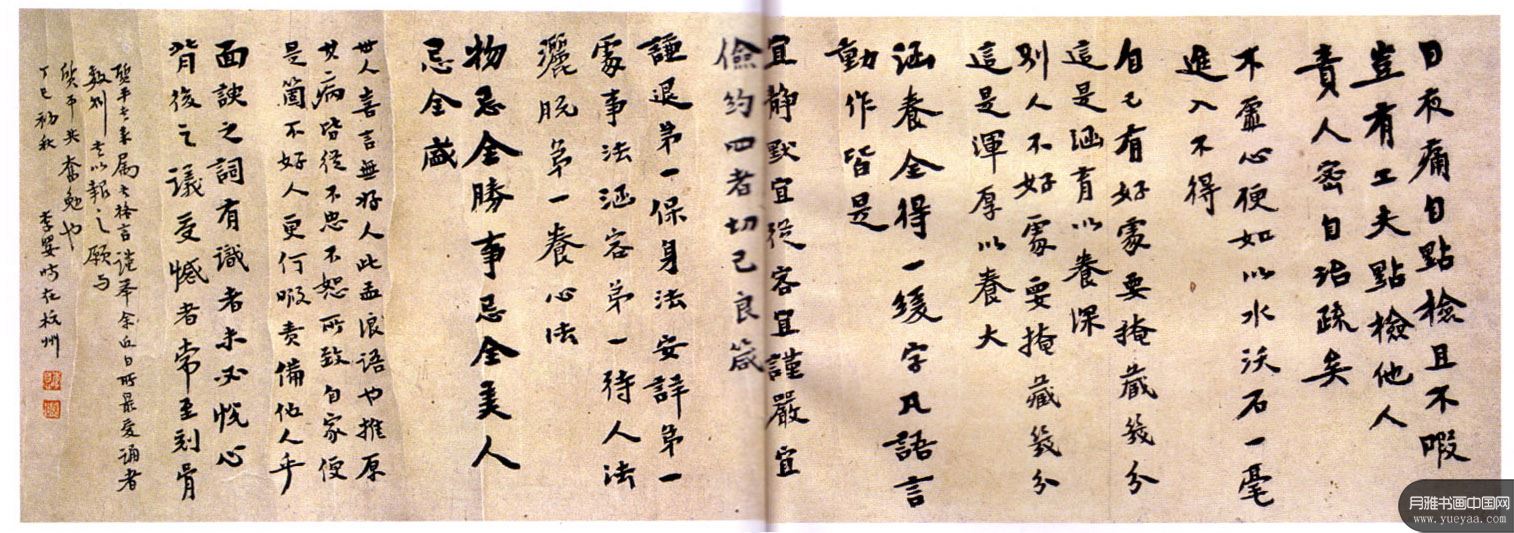 日夜痛自點檢且不暇
豈有工夫點檢他人
責人密自治疏矣
不虛心便如以水沃石一毫
進入不得
自己有好處要掩藏幾分
這是涵育以養深
別人不好處要掩藏幾分
這是渾厚以養大
涵養全得一緩字凡語言
動作皆是
宜靜默宜從容宜謹嚴宜
儉約四者切己良箴
謙退第一保身法安詳第一
處事法涵容第一待人法
灑脫第一養心法
物忌全勝事忌全美人
忌全盛
世人喜言無好人此孟浪語也推原
其病皆從不忠不恕所致自家便
是箇不好人更何暇責備他人乎
面諛之詞有識者未必悅心
背後之議受憾者常至刻骨
賢平大弟屬書格言謹舉余近日所最愛誦者
數則書以報之願與
賢平共奮勉也
丁巳初秋 李嬰時在杭州
月雅书画中国网
www.yueyaa.com